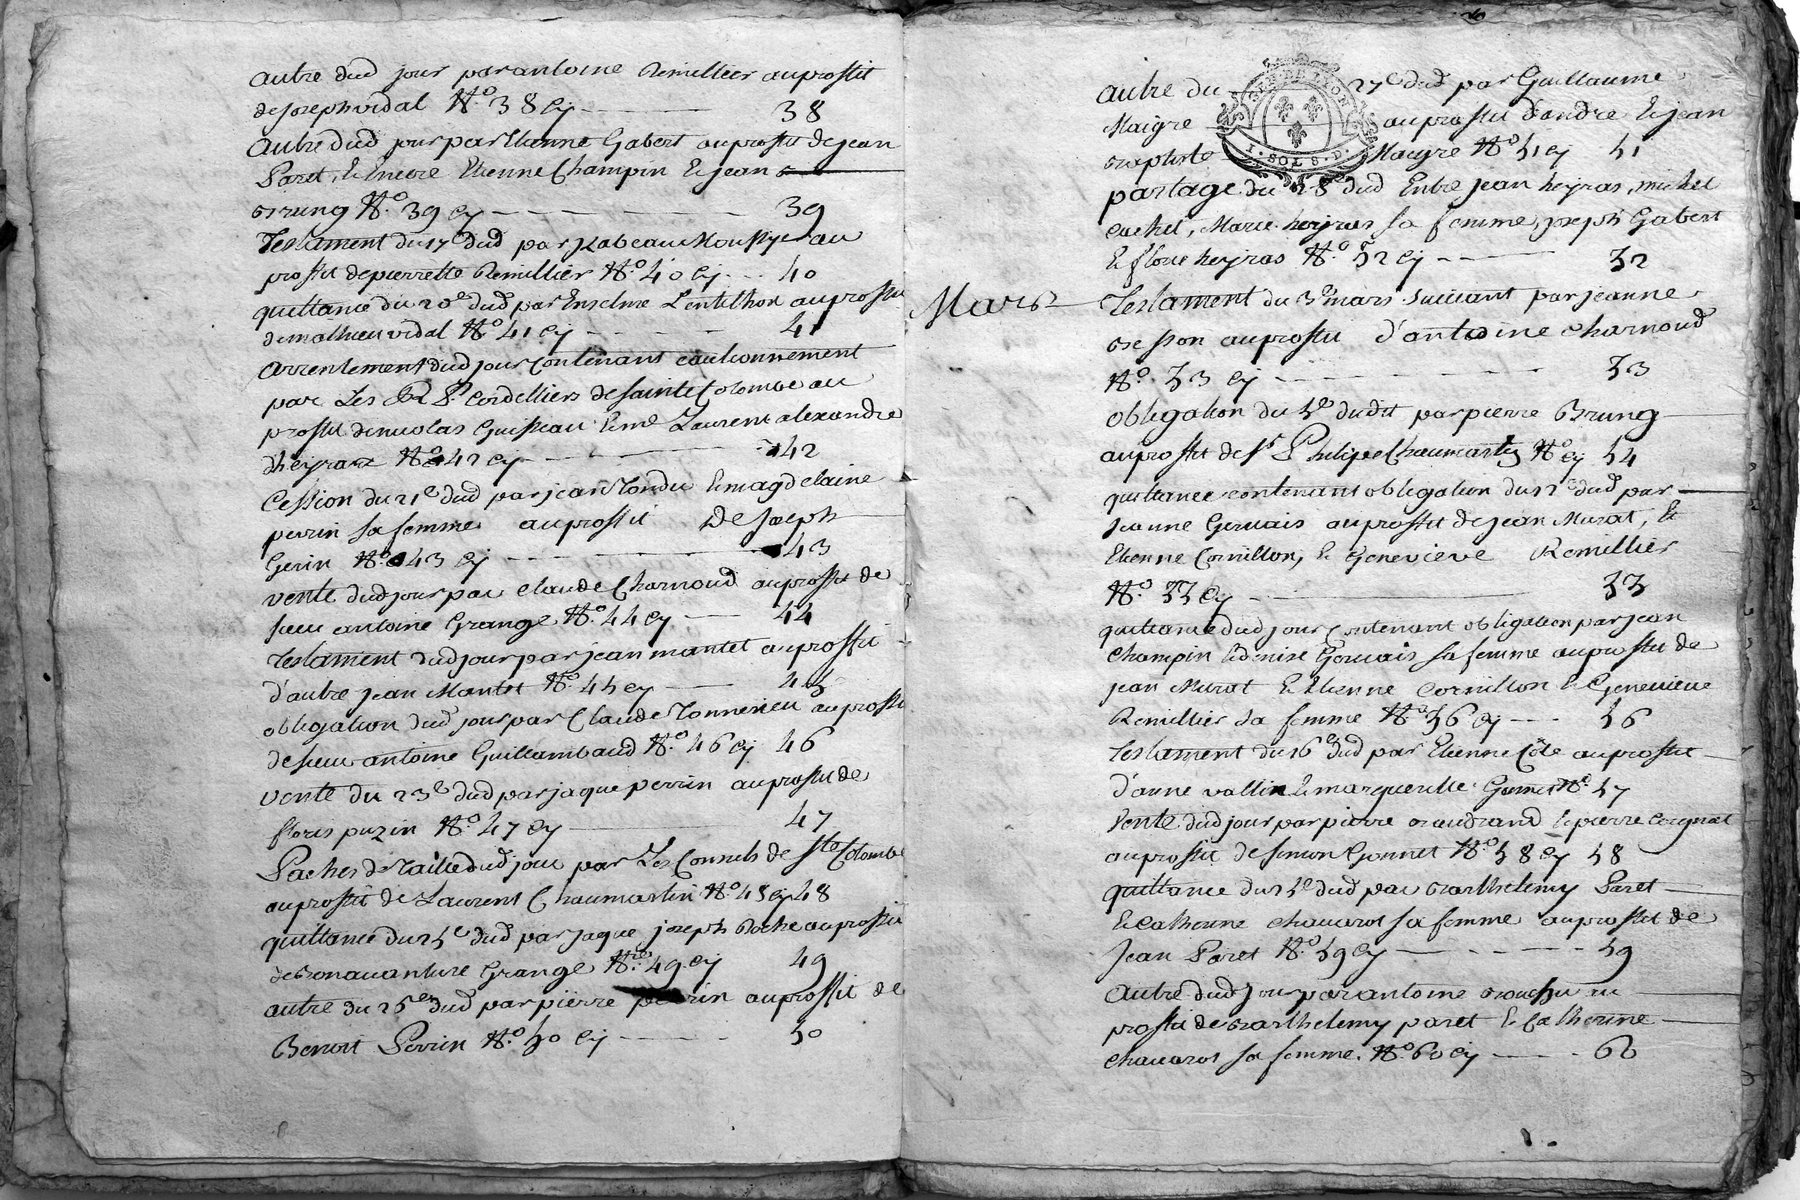 autre dud jour par antoine Remillier au proffit
de Joseph vidal N.o 38 cy 38
autre dud jour par Etienne Gabert au proffit de jean
Paret, & Encore Etienne Champin & jean
Brung N.o 39 cy 39
Testament du 17e dud par jzabeau au
proffit de pierrette Remillier N.o 40 cy 40
quittance du 20e dud par Enselme Lentilhon au proffit
de mathieu vidal N.o 41 cy 41
arrentement dud jour Contenant cautionnement
par Les RR P. Cordelliers de Sainte Colombe au
proffit de nicolas & me Laurent alexandre
d'heyraux N.o 42 cy 42
Cession du 21e dud par jean Tondu & magdelaine
perrin sa femme au proffit De Joseph
Gerin N.o 43 cy 43
vente dud jour par Claude Charnoud au proffit de
sieur antoine Grange N.o 44 cy 44
Testament dud jour par jean mantet au proffit
d'autre jean Mantet N.o 45 cy 45
obligation dud jour par Claude Tonnerieu au proffit
de sieur antoine Guillambaud N.o 46 cy 46
vente du 23e dud par jaque perrin au proffit de
floris puzin N.o 47 cy 47
Paches de Taille dud jour par Les Consuls de Ste Colombe
au proffit de Laurent Chaumartin N.o 48 cy 48
quittance du 25e dud par jaque joseph Roche au proffit
de Bonavanture Grange N.o 49 cy 49
autre du 26e dud par pierre perrin au proffit de
Benoit Perrin N.o 50 cy 50
autre du 27e dud par Guillaume
GEN. DE LYON
Maigre au proffit d'andre & jean
Baptiste Maigre N.o 51 cy 51
I. SOL 8. D.
partage du 28e dud Entre jean heyras, michel
cachet, Marie heyras sa femme, joseph Gabert
& fleurie heyras N.o 52 cy 52
Mars
Testament du 3e mars suivant par jeanne
Besson au proffit d'antoine Charnoud
N.o 53 cy 53
obligation du 5e dudit par pierre Brung
au proffit de sr Philipe Chaumartin N.o cy 54
quittance contenant obligation du 12e dud par
Jeanne Gervais au proffit de jean Murat, &
Etienne Cornillon, & Genevieve Remillier
N.o 55 cy 55
quittance dud jour Contenant obligation par jean
Champin & denise Gervais sa femme au proffit de
jean Murat & Etienne Cornillon & Genevieve
Remillier sa femme N.o 56 cy 56
Testament du 16e dud par Etienne Côte au proffit
d'anne vallin & margueritte N.o 57
Vente dud jour par pierre Baudrand & pierre
au proffit de simon Gonnet N.o 58 cy 58
quittance du 25e dud par Barthelemy Paret
& Catherine Chavarot sa femme au proffit de
Jean Paret N.o 59 cy 59
Autre dud jour par antoine au
proffit de Barthelemy paret & Catherine
Chavarot sa femme. N.o 60 cy 60